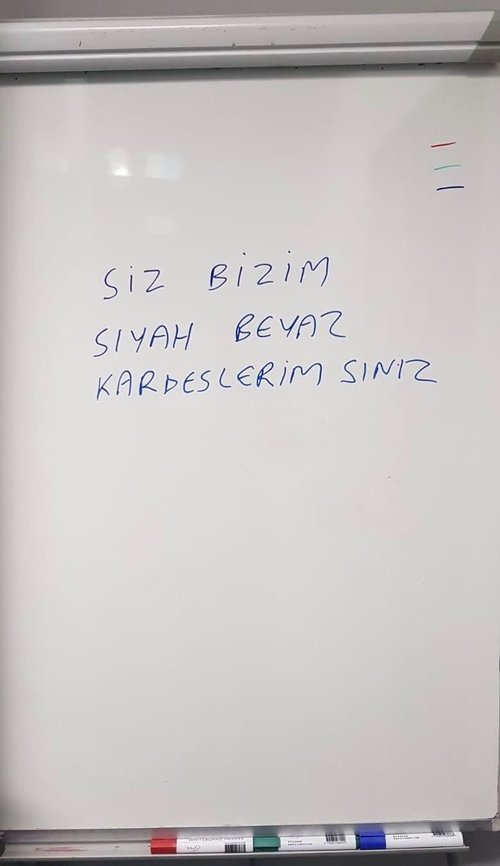 SiZ BiZiM
SIYAH BEYAZ
KARDESLERiM SINIZ
WHITEBOARD MARKER